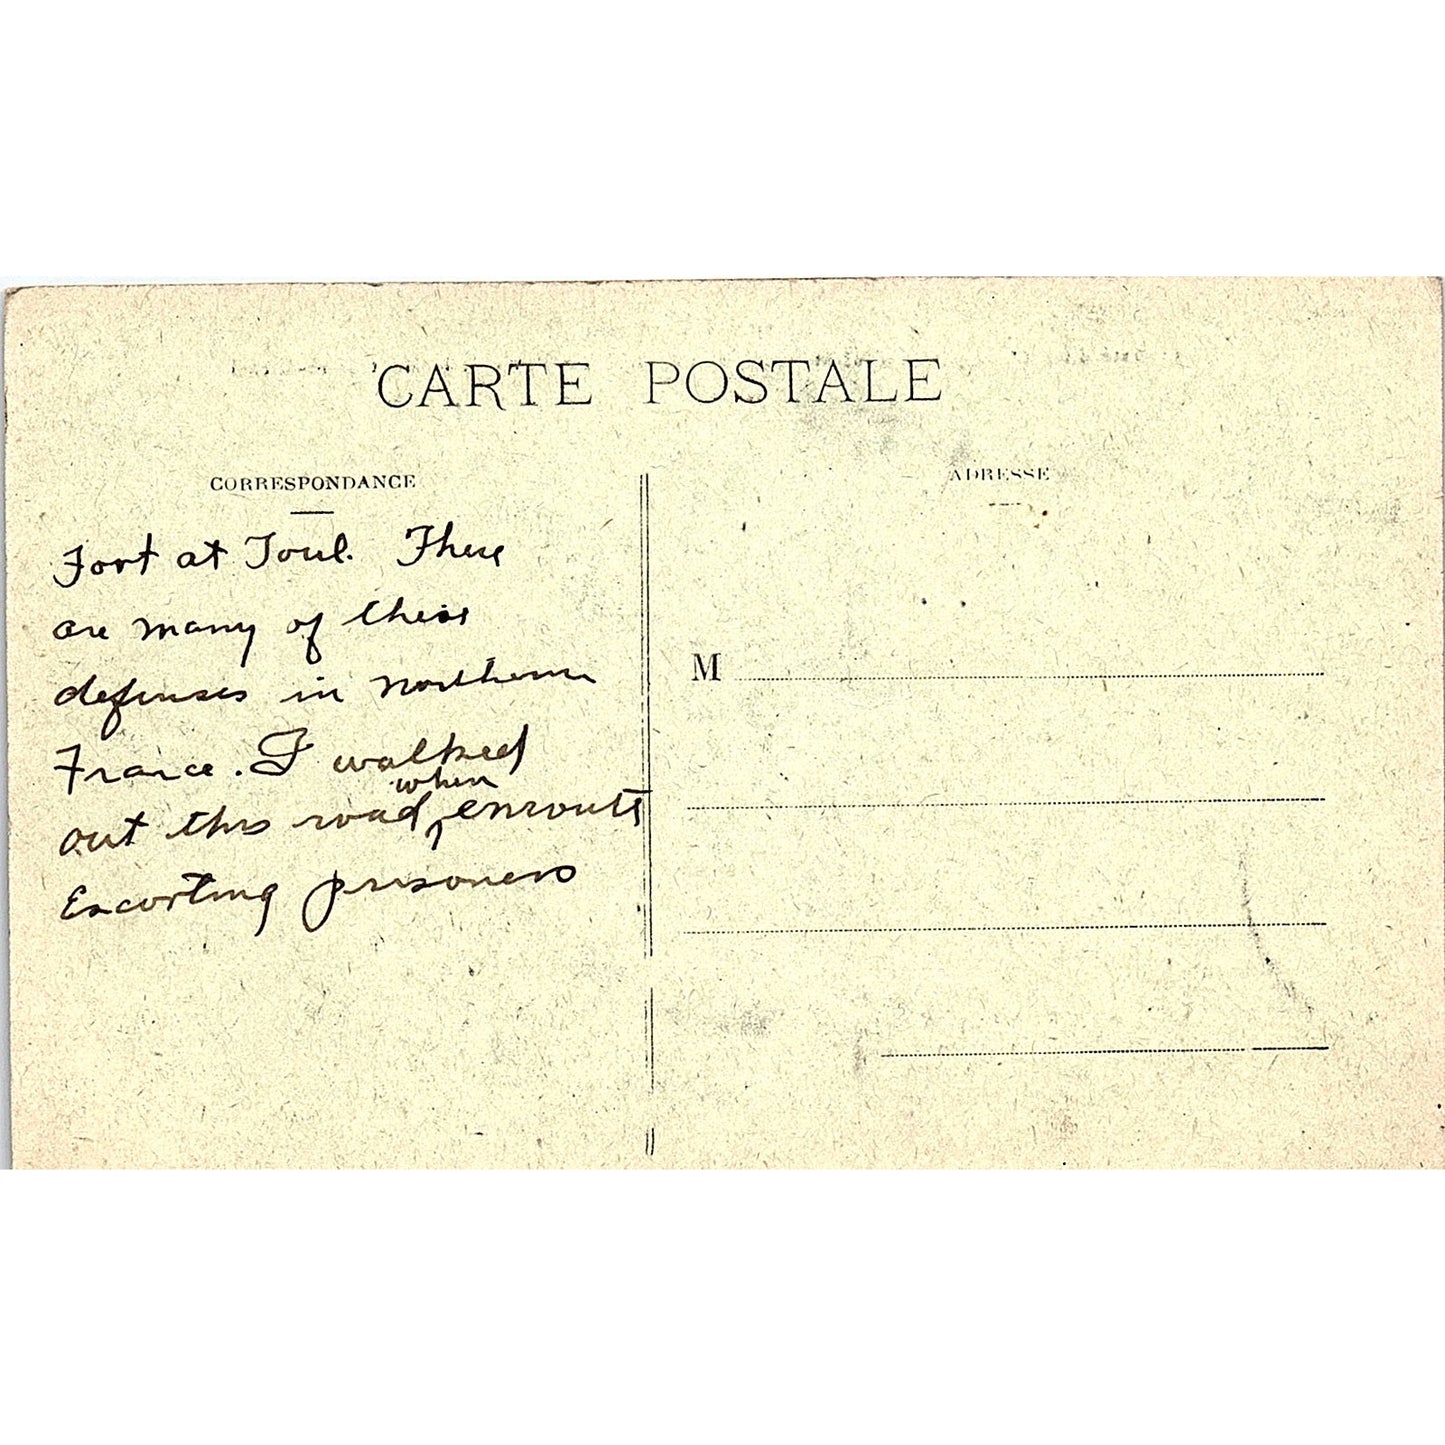 CARTE POSTALE
CORRESPONDANCE
ADRESSE
Fort at Toul. There
are many of these
defenses in northern
France. I walked
when
out this road, enroute
Escorting prisoners
M